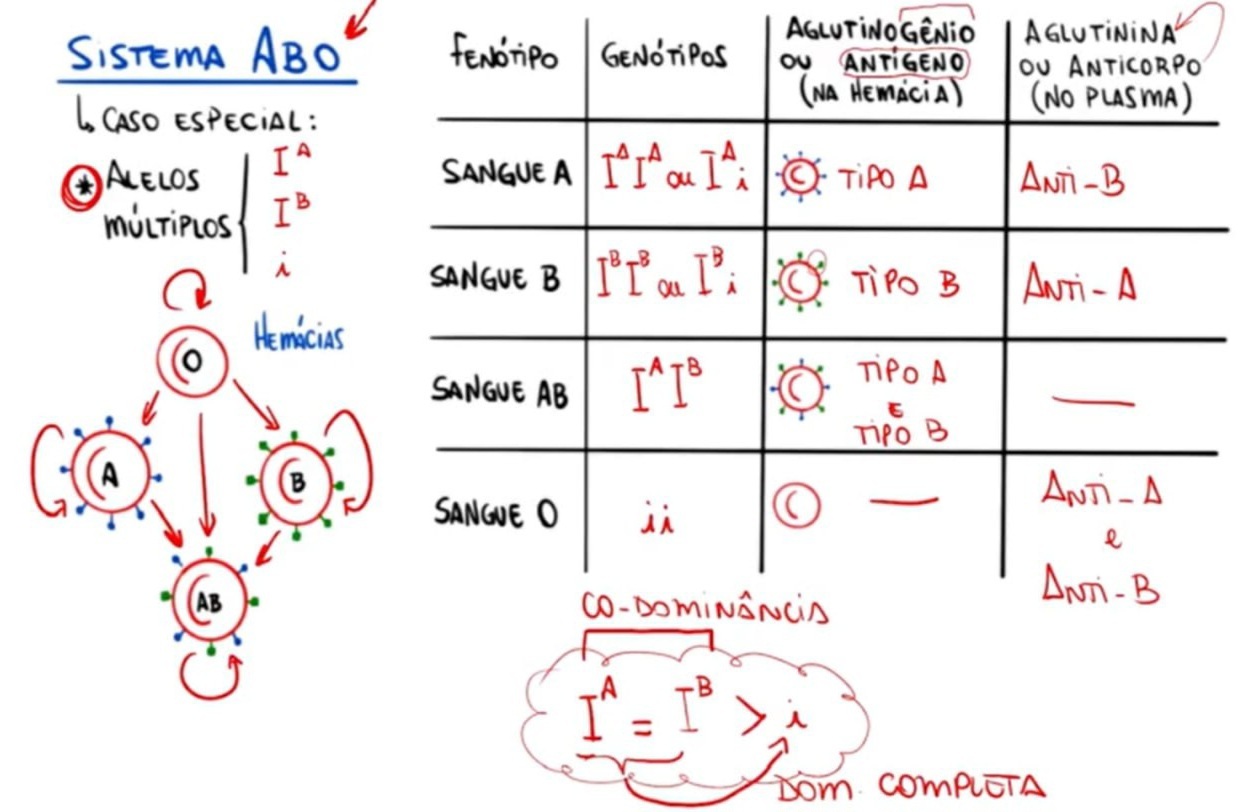 SISTEMA ABO
CASO ESPECIAL:
* ALELOS
MÚLTIPLOS
I^A
I^B
i
HEMÁCIAS
O
A
B
AB
FENÓTIPO
GENÓTIPOS
AGLUTINOGÊNIO
OU ANTÍGENO
(NA HEMÁCIA)
AGLUTININA
OU ANTICORPO
(NO PLASMA)
SANGUE A
I^A I^A ou I^A i
TIPO A
ANTI-B
SANGUE B
I^B I^B ou I^B i
TIPO B
ANTI-A
SANGUE AB
I^A I^B
TIPO A
E
TIPO B
—
SANGUE O
ii
—
ANTI-A
e
ANTI-B
CO-DOMINÂNCIA
I^A = I^B > i
DOM. COMPLETA